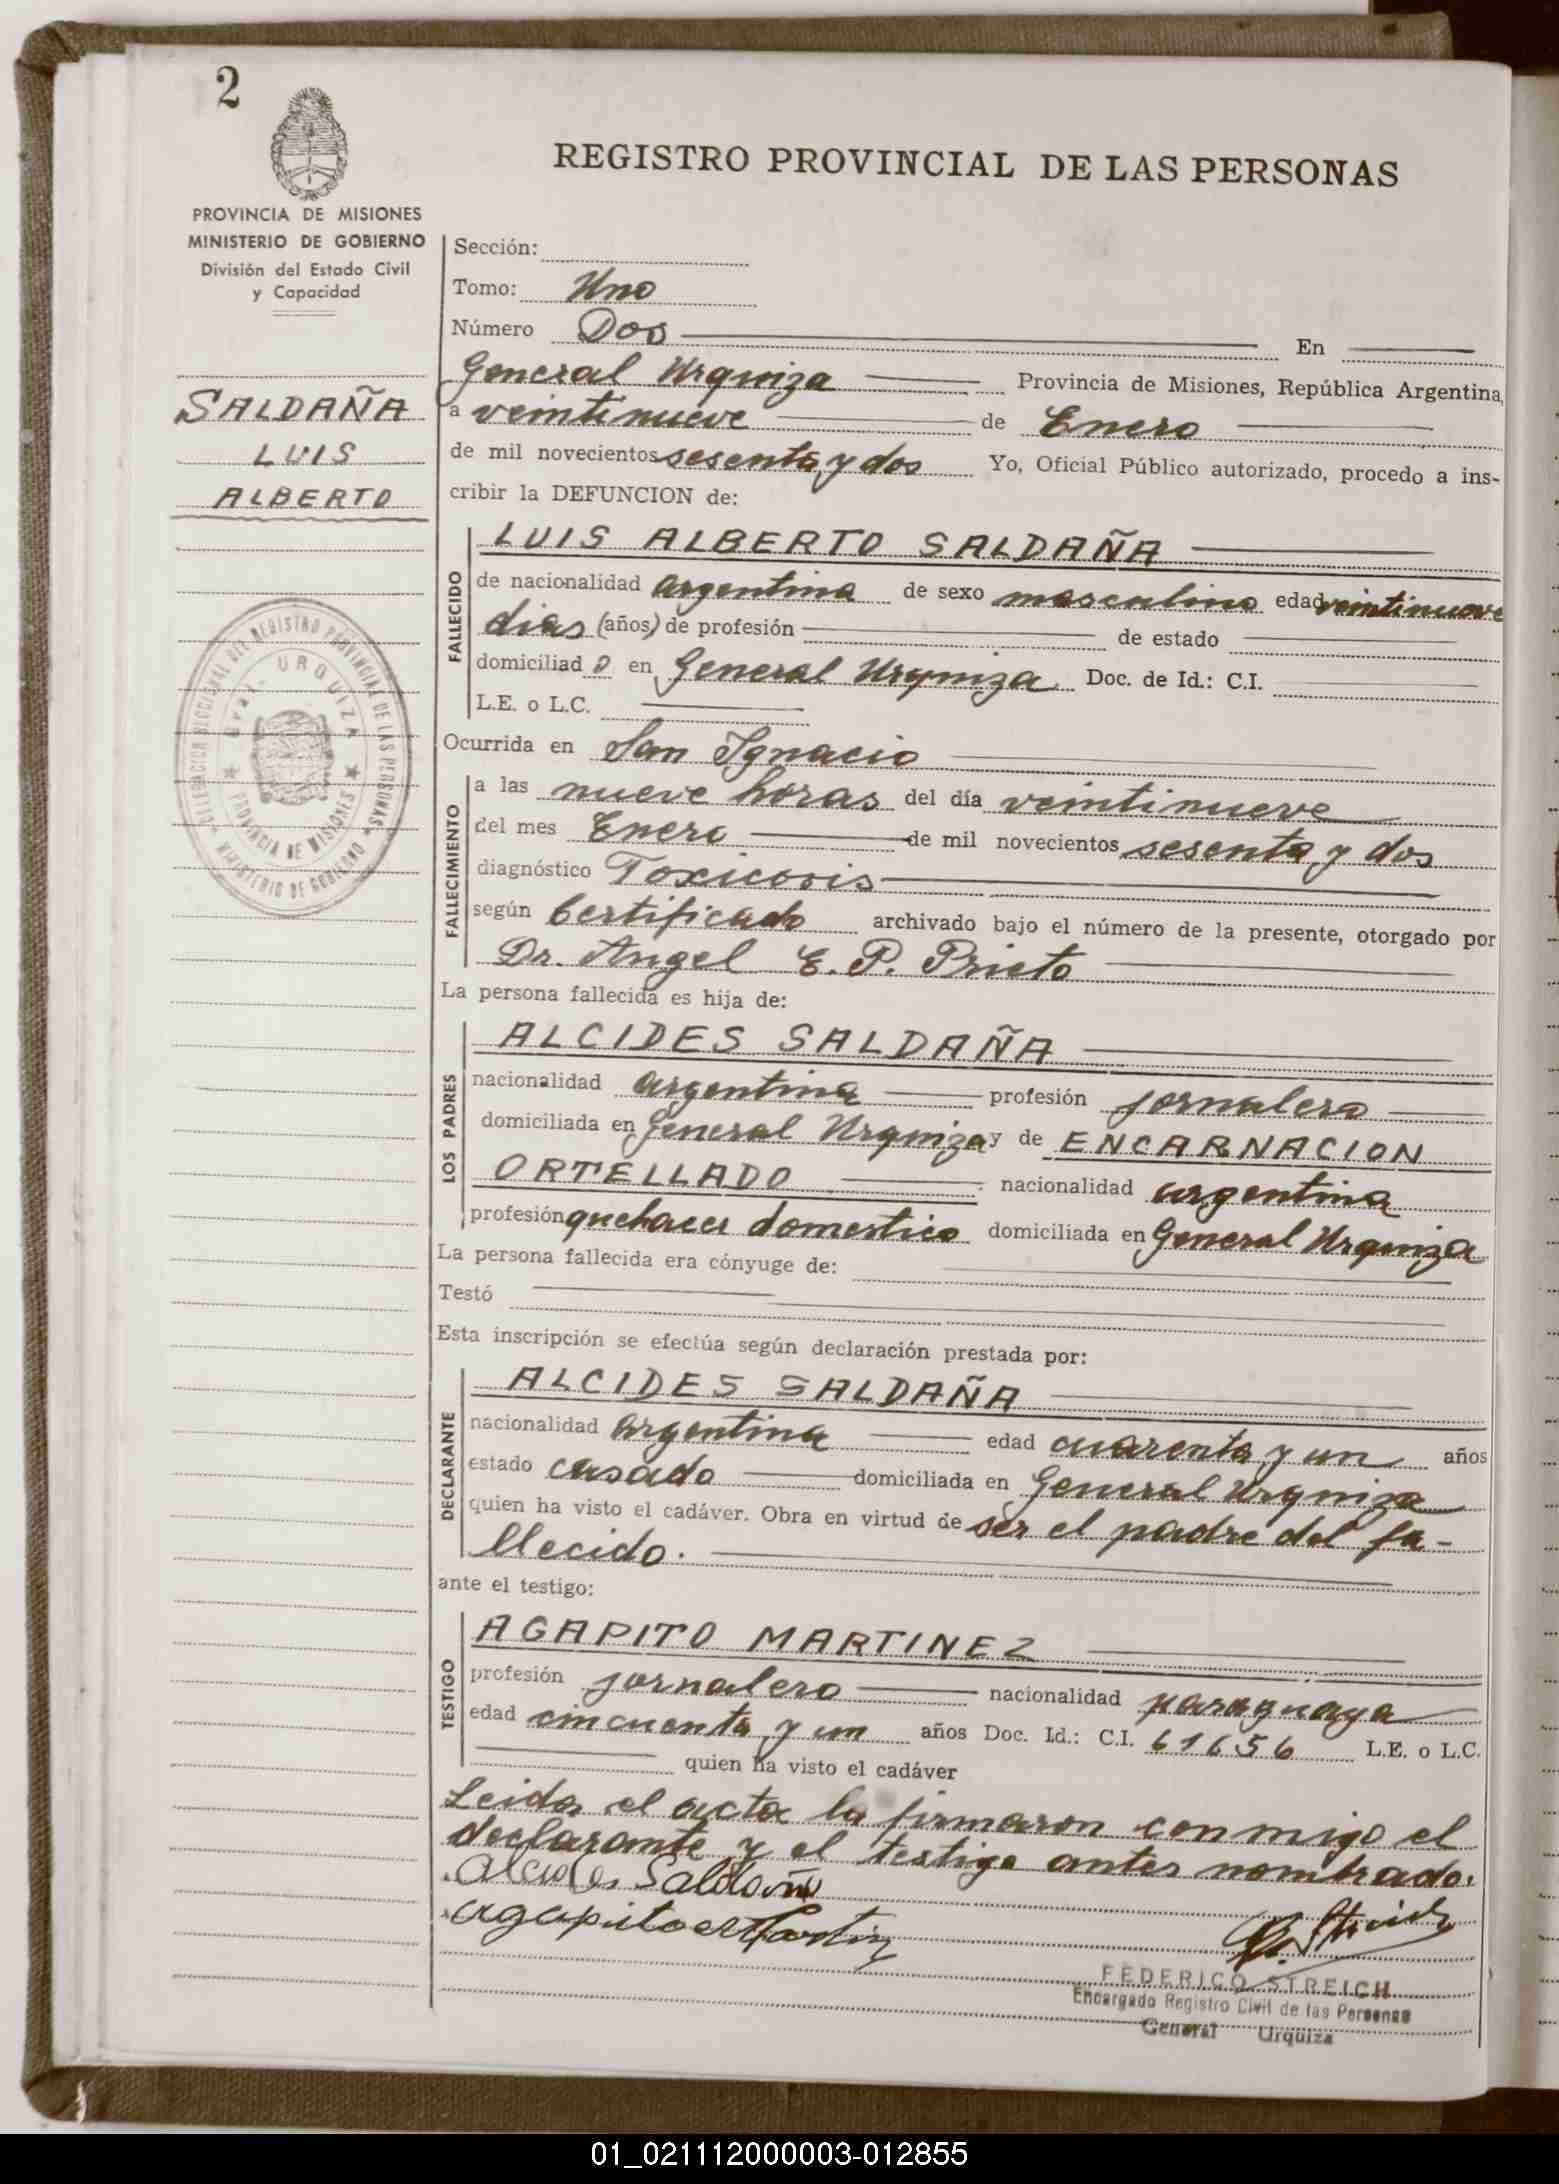 2
REGISTRO PROVINCIAL DE LAS PERSONAS
PROVINCIA DE MISIONES
MINISTERIO DE GOBIERNO
División del Estado Civil
y Capacidad
SALDAÑA
LUIS
ALBERTO
DELEGACION SECCIONAL DEL REGISTRO PROVINCIAL DE LAS PERSONAS
Gral. URQUIZA
PROVINCIA DE MISIONES
MINISTERIO DE GOBIERNO
Sección:
Tomo: Uno
Número Dos
En
General Urquiza Provincia de Misiones, República Argentina,
a veintinueve de Enero
de mil novecientos sesenta y dos Yo, Oficial Público autorizado, procedo a ins-
cribir la DEFUNCION de:
FALLECIDO
LUIS ALBERTO SALDAÑA
de nacionalidad argentina de sexo masculino edad veintinueve
dias (años) de profesión de estado
domiciliad o en General Urquiza Doc. de Id.: C.I.
L.E. o L.C.
Ocurrida en San Ignacio
FALLECIMIENTO
a las nueve horas del día veintinueve
del mes Enero de mil novecientos sesenta y dos
diagnóstico Toxicosis
según Certificado archivado bajo el número de la presente, otorgado por
Dr. Angel E. P. Prieto
La persona fallecida es hija de:
LOS PADRES
ALCIDES SALDAÑA
nacionalidad argentina profesión jornalero
domiciliada en General Urquiza y de ENCARNACION
ORTELLADO nacionalidad argentina
profesión quehacer domestico domiciliada en General Urquiza
La persona fallecida era cónyuge de:
Testó
Esta inscripción se efectúa según declaración prestada por:
DECLARANTE
ALCIDES SALDAÑA
nacionalidad argentina edad cuarenta y un años
estado casado domiciliada en General Urquiza
quien ha visto el cadáver. Obra en virtud de ser el padre del fa-
llecido.
ante el testigo:
TESTIGO
AGAPITO MARTINEZ
profesión jornalero nacionalidad paraguaya
edad cincuenta y un años Doc. Id.: C.I. 61656 L.E. o L.C.
quien ha visto el cadáver
Leida el acta la firmaron conmigo el
declarante y el testigo antes nombrado.
Alcides Saldaña
agapito Martinez
F. Streich
FEDERICO STREICH
Encargado Registro Civil de las Personas
General Urquiza
01_021112000003-012855